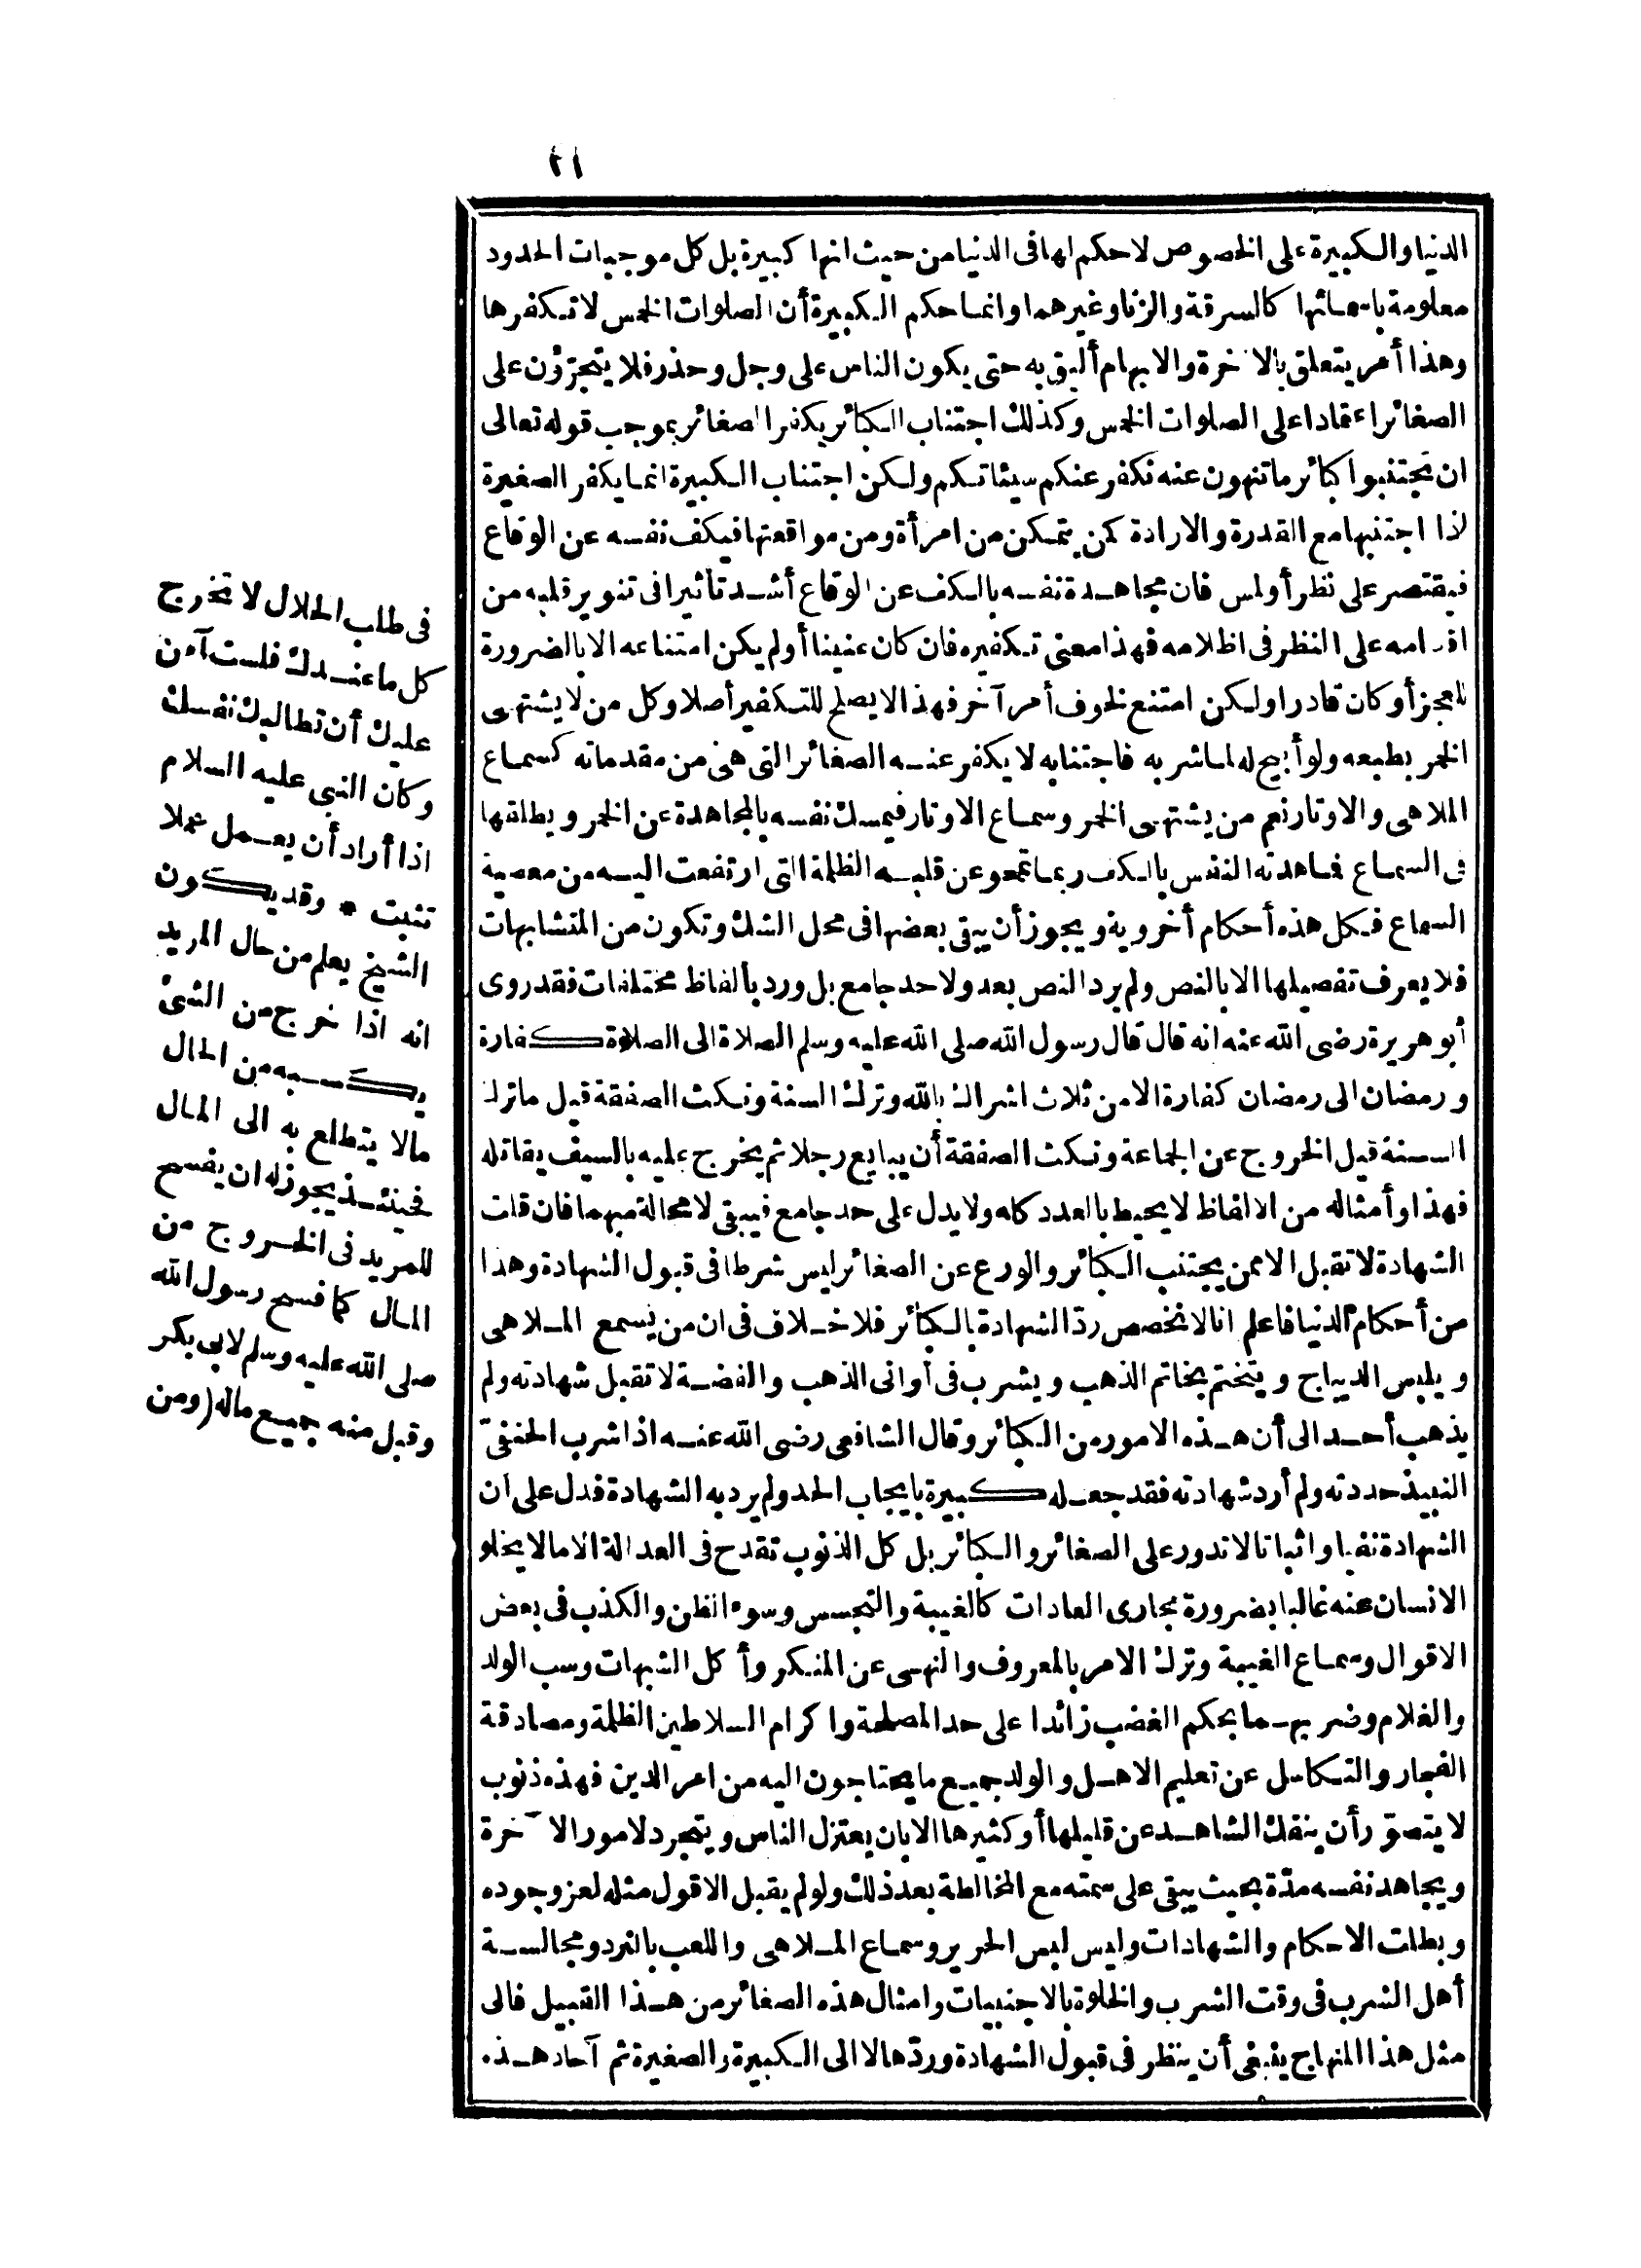 ٢١
الدنيا والكبيرة على الخصوص لا حكم لها فى الدنيا من حيث انها كبيرة بل كل موجبات الحدود
معلومة باسمائها كالسرقة والزنا وغيرهما وانما حكم الكبيرة أن الصلوات الخمس لا تكفرها
وهذا أمر يتعلق بالآخرة والابهام أليق به حتى يكون الناس على وجل وحذر فلا يتجرؤن على
الصغائر اعتمادا على الصلوات الخمس وكذلك اجتناب الكبائر يكفر الصغائر بموجب قوله تعالى
ان تجتنبوا كبائر ما تنهون عنه نكفر عنكم سيئاتكم ولكن اجتناب الكبيرة انما يكفر الصغيرة
اذا اجتنبها مع القدرة والارادة كمن يتمكن من امرأة ومن مواقعتها فيكف نفسه عن الوقاع
فيقتصر على نظر أو لمس فان مجاهدة نفسه بالكف عن الوقاع أشد تأثيرا فى تنوير قلبه من
اقدامه على النظر فى اظلامه فهذا معنى تكفيره فان كان عنينا أو لم يكن امتناعه الا بالضرورة
للعجز أو كان قادرا ولكن امتنع لخوف أمر آخر فهذا لا يصلح للتكفير أصلا وكل من لا يشتهى
الخمر بطبعه ولو أبيح له لما شربه فاجتنابه لا يكفر عنه الصغائر التى هى من مقدماته كسماع
الملاهى والاوتار نعم من يشتهى الخمر وسماع الاوتار فيمسك نفسه بالمجاهدة عن الخمر ويطلقها
فى السماع فمجاهدته النفس بالكف ربما تمحو عن قلبه الظلمة التى ارتفعت اليه من معصية
السماع فكل هذه أحكام أخروية ويجوز أن يبقى بعضها فى محل الشك وتكون من المتشابهات
فلا يعرف تفصيلها الا بالنص ولم يرد النص بعد ولا حد جامع بل ورد بألفاظ مختلفات فقد روى
أبو هريرة رضى الله عنه انه قال قال رسول الله صلى الله عليه وسلم الصلاة الى الصلاة كفارة
ورمضان الى رمضان كفارة الا من ثلاث اشراك بالله وترك السنة ونكث الصفقة قيل ما ترك
السنة قيل الخروج عن الجماعة ونكث الصفقة أن يبايع رجلا ثم يخرج عليه بالسيف يقاتله
فهذا وأمثاله من الالفاظ لا يحيط بالعدد كله ولا يدل على حد جامع فيبقى لا محالة مبهما فان قلت
الشهادة لا تقبل الا ممن يجتنب الكبائر والورع عن الصغائر ليس شرطا فى قبول الشهادة وهذا
من أحكام الدنيا فاعلم انا لا نخصص ردّ الشهادة بالكبائر فلا خلاف فى ان من يسمع الملاهى
ويلبس الديباج ويتختم بخاتم الذهب ويشرب فى أوانى الذهب والفضة لا تقبل شهادته ولم
يذهب أحد الى أن هذه الامور من الكبائر وقال الشافعى رضى الله عنه اذا شرب الحنفىّ
النبيذ حددته ولم أرد شهادته فقد جعله كبيرة بايجاب الحد ولم يرد به الشهادة فدل على ان
الشهادة نفيا واثباتا لا تدور على الصغائر والكبائر بل كل الذنوب تقدح فى العدالة الا ما لا يخلو
الانسان عنه غالبا بضرورة مجارى العادات كالغيبة والتجسس وسوء الظن والكذب فى بعض
الاقوال وسماع الغيبة وترك الامر بالمعروف والنهى عن المنكر وأكل الشبهات وسب الولد
والغلام وضربهما بحكم الغضب زائدا على حد المصلحة واكرام السلاطين الظلمة ومصادقة
الفجار والتكاسل عن تعليم الاهل والولد جميع ما يحتاجون اليه من امر الدين فهذه ذنوب
لا يتصوّر أن ينفك الشاهد عن قليلها أو كثيرها الا بان يعتزل الناس ويتجرد لامور الآخرة
ويجاهد نفسه مدّة بحيث يبقى على سمته مع المخالطة بعد ذلك ولو لم يقبل الا قول مثله لعز وجوده
وبطلت الاحكام والشهادات وليس لبس الحرير وسماع الملاهى واللعب بالنرد ومجالسة
أهل الشرب فى وقت الشرب والخلوة بالاجنبيات وامثال هذه الصغائر من هذا القبيل فالى
مثل هذا المنهاج ينبغى أن ينظر فى قبول الشهادة وردّها لا الى الكبيرة والصغيرة ثم آحاد هذه
فى طلب الحلال لا تخرج
كل ما عندك فلست آمن
عليك أن تطالبك نفسك
وكان النبى عليه السلام
اذا أراد أن يعمل عملا
تثبت * وقد يكون
الشيخ يعلم من حال المريد
انه اذا خرج من الشئ
يكسبه من الحال
مالا يتطلع به الى المال
فحينئذ يجوز له ان يفسح
للمريد فى الخروج من
المال كما فسح رسول الله
صلى الله عليه وسلم لابى بكر
وقبل منه جميع ماله (ومن